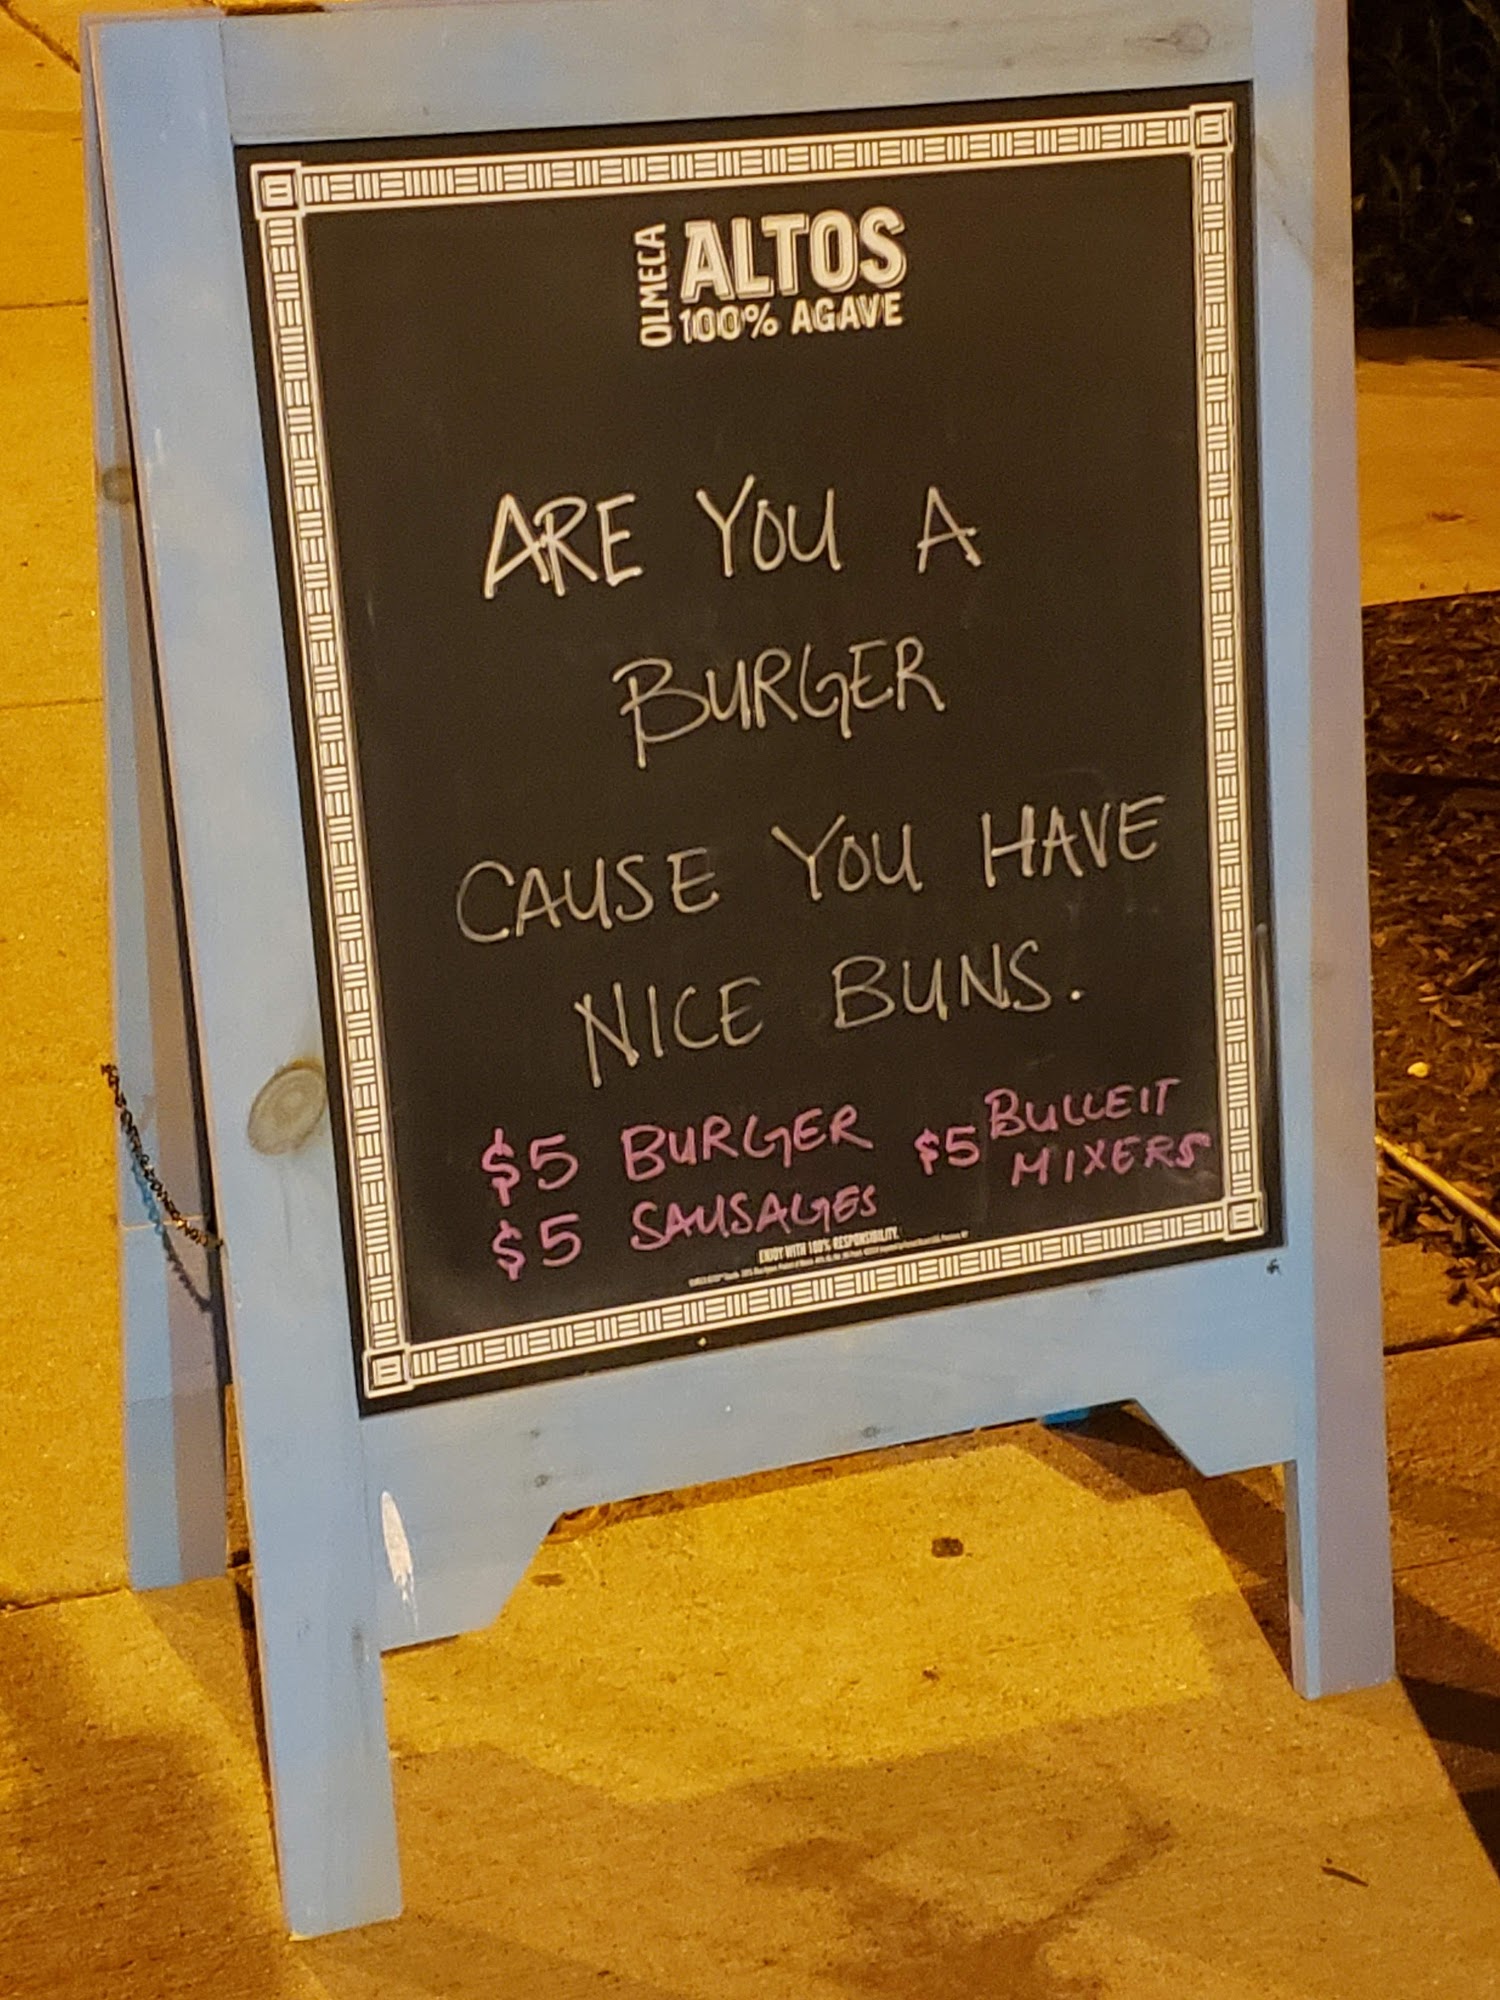 OLMECA
ALTOS
100% AGAVE
ARE YOU A
BURGER
CAUSE YOU HAVE
NICE BUNS.
$5 BURGER
$5 SAUSAGES
$5 BULLEIT
MIXERS
ENJOY WITH 100% RESPONSIBILITY.